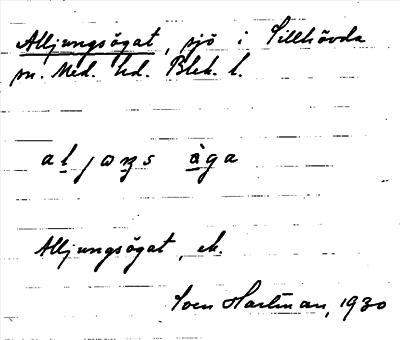 Alljungsögat, sjö i Tillhövda
sn. Med. hd. Blek. l.
aljɷŋs åga
Alljungsögat, ek.
Sven Hartman, 1930